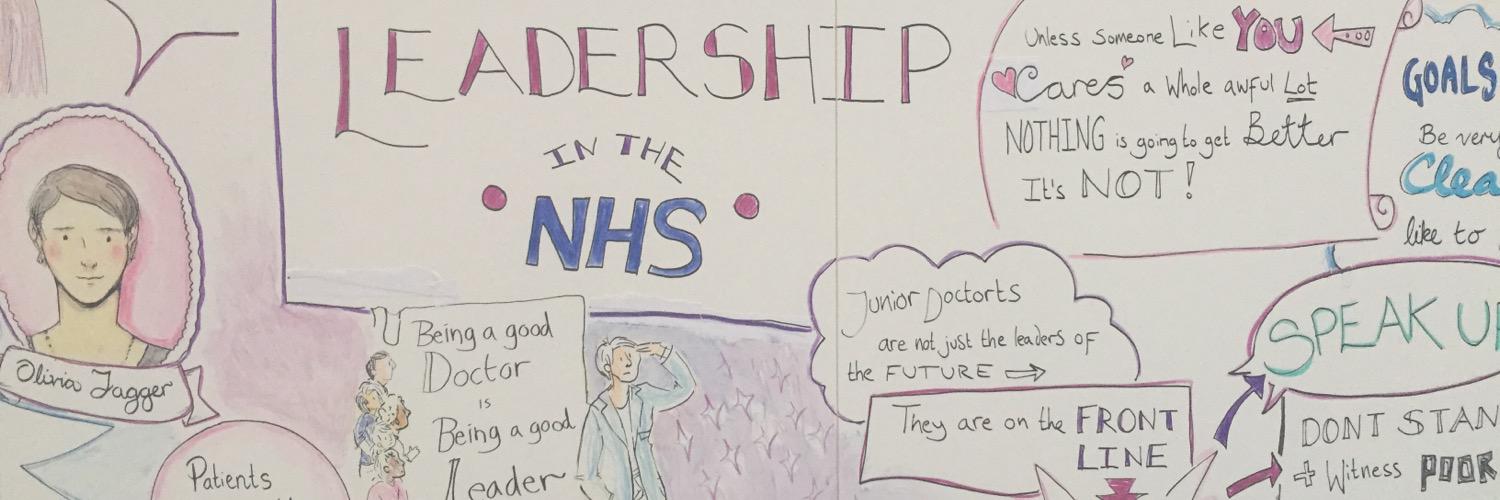 LEADERSHIP
IN THE
NHS
Unless Someone Like YOU
Cares a Whole awful Lot
NOTHING is going to get Better
It's NOT!
GOALS
Be very
Clea
like to
Olivia Jagger
Patients
Being a good
Doctor
is
Being a good
Leader
Junior Doctorts
are not just the leaders of
the FUTURE →
They are on the FRONT
LINE
SPEAK UP
DONT STAN
+ Witness POOR